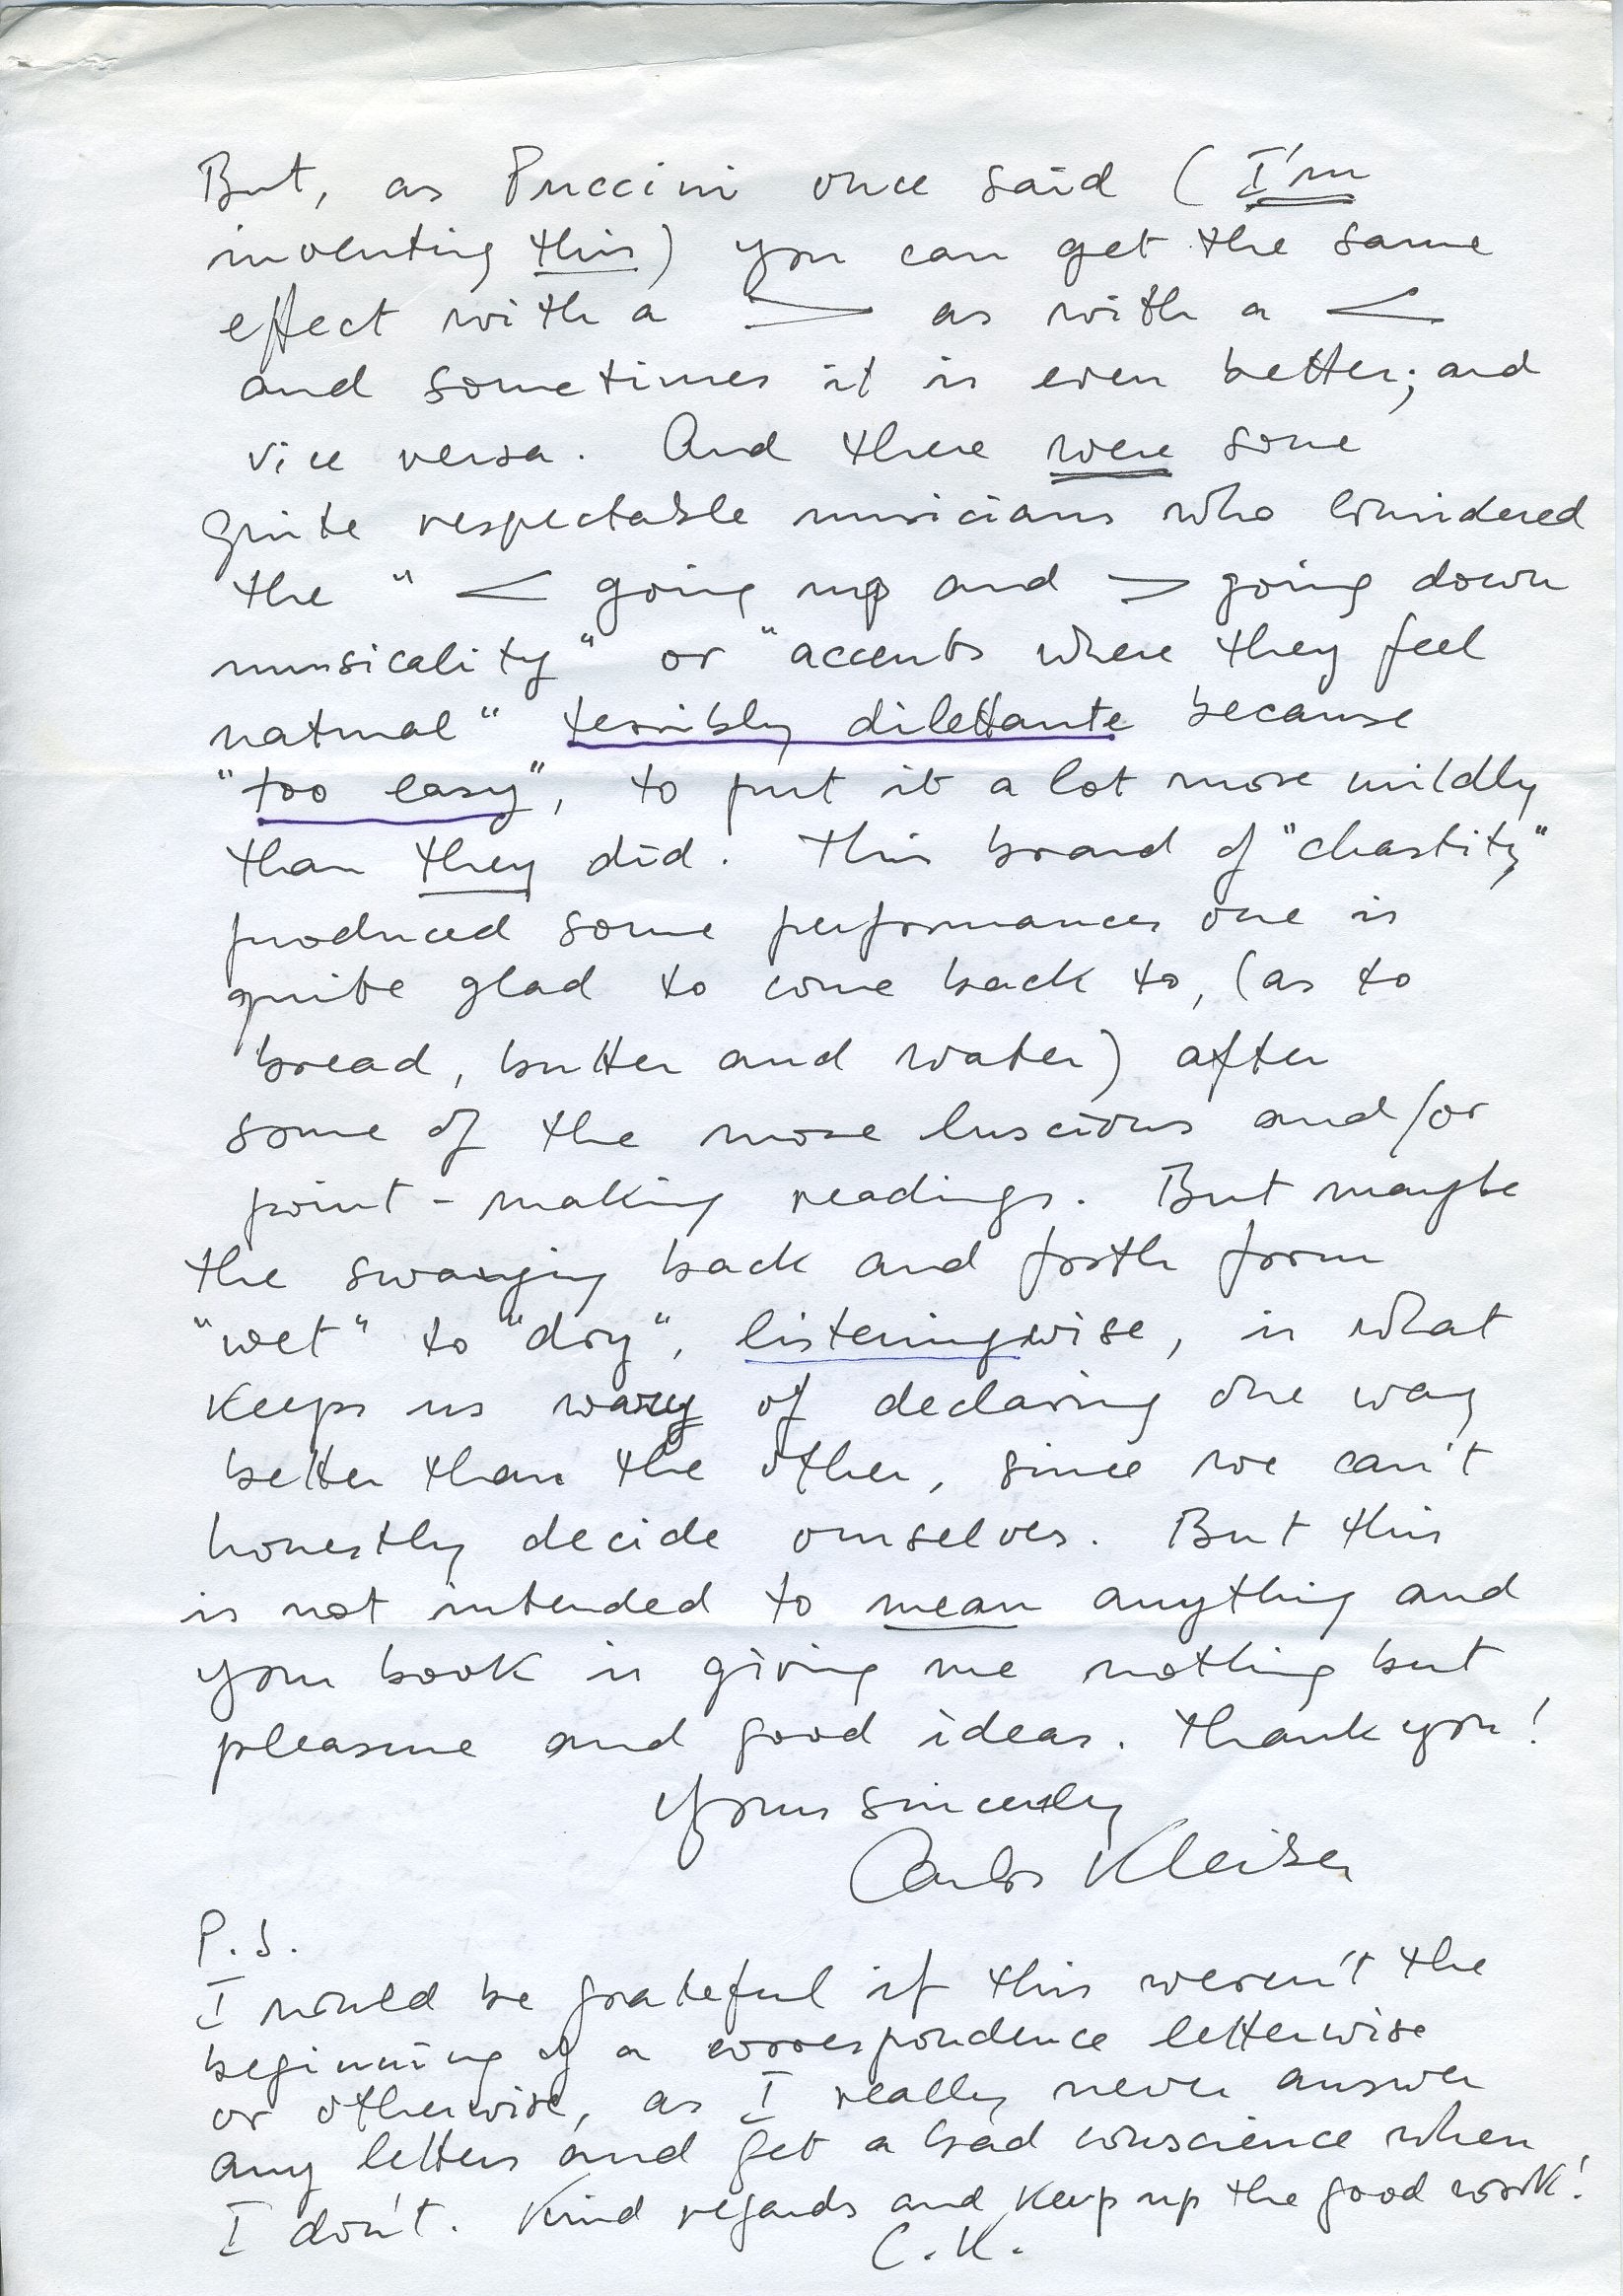 But, as Puccini once said (I'm
inventing this) you can get the same
effect with a > as with a <
and sometimes it is even better; and
vice versa. And there were some
quite respectable musicians who considered
the " < going up and > going down
musicality" or "accents where they feel
natural" terribly dilettante because
"too easy", to put it a lot more mildly
than they did. This brand of "chastity"
produced some performances one is
quite glad to come back to, (as to
bread, butter and water) after
some of the more luscious and/or
point-making readings. But maybe
the swaying back and forth from
"wet" to "dry", listeningwise, is what
keeps us wary of declaring one way
better than the other, since we can't
honestly decide ourselves. But this
is not intended to mean anything and
your book is giving me nothing but
pleasure and good ideas. Thank you!
Yours sincerely
Carlos Kleiber
P.S.
I would be grateful if this weren't the
beginning of a correspondence letterwise
or otherwise, as I really never answer
any letters and get a bad conscience when
I don't. Kind regards and keep up the good work!
C.K.